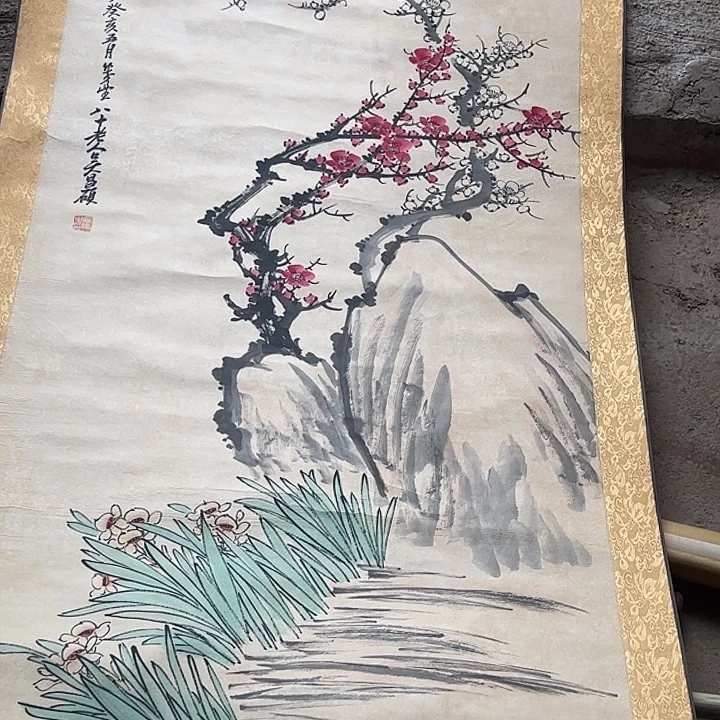 癸亥五月年坐
八十老人吳昌碩